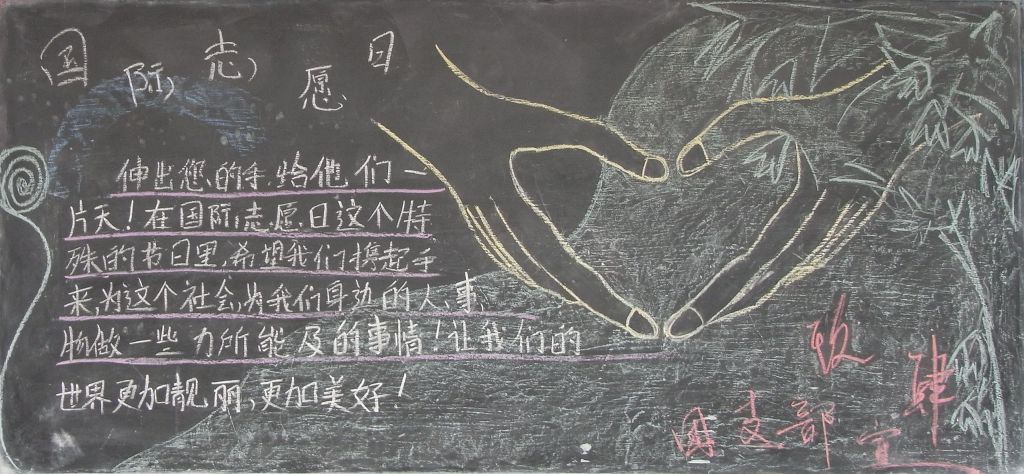 国际志愿日
伸出您的手,给他们一
片天!在国际志愿日这个特
殊的节日里,希望我们携起手
来,为这个社会,为我们身边的人、事
物做一些力所能及的事情!让我们的
世界更加靓丽,更加美好!
团支部宣